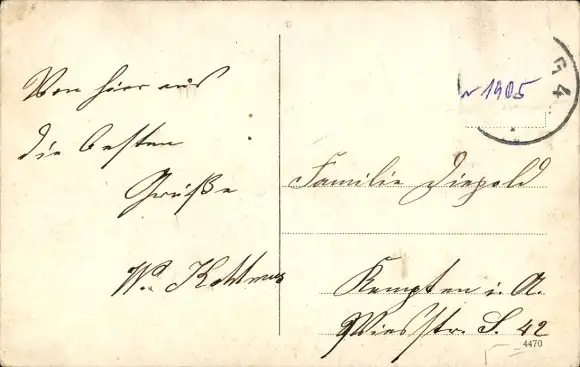 Von hier aus
die besten
Grüße
W. Kottmus
~ 1905
Familie Diepold
Kempten i. A.
Wiesstr. S. 42
4470